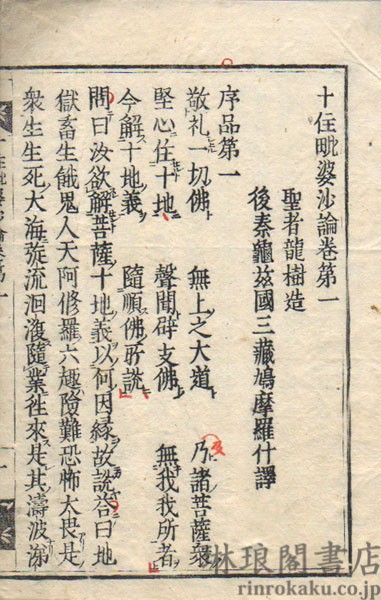 十住毗婆沙論卷第一
聖者龍樹造
後秦龜茲國三藏鳩摩羅什譯
序品第一
敬礼一切佛　無上之大道　乃諸菩薩衆
及
堅心住十地　聲聞辟支佛　無我我所者
今解十地義　隨順佛所説
問曰汝欲解菩薩十地義以何因縁故説荅曰地
獄畜生餓鬼人天阿修羅六趣險難恐怖大畏是
衆生生死大海旋流洄澓隨業徃來是其濤波涕
林琅閣書店
rinrokaku.co.jp